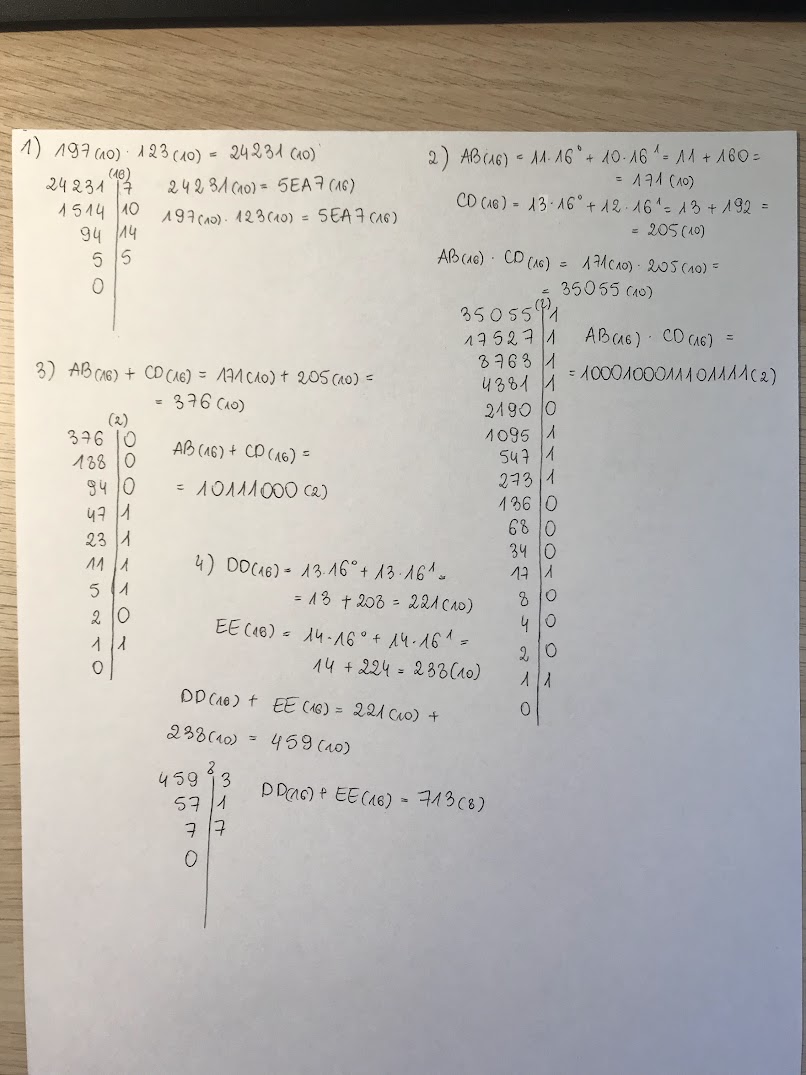 1) 197(10) · 123(10) = 24231(10)
(16)
24231 | 7
1514 | 10
94 | 14
5 | 5
0
24231(10) = 5EA7(16)
197(10) · 123(10) = 5EA7(16)
2) AB(16) = 11·16⁰ + 10·16¹ = 11 + 160 =
= 171(10)
CD(16) = 13·16⁰ + 12·16¹ = 13 + 192 =
= 205(10)
AB(16) · CD(16) = 171(10) · 205(10) =
= 35055(10)
(2)
35055 | 1
17527 | 1
8763 | 1
4381 | 1
2190 | 0
1095 | 1
547 | 1
273 | 1
136 | 0
68 | 0
34 | 0
17 | 1
8 | 0
4 | 0
2 | 0
1 | 1
0
AB(16) · CD(16) =
= 1000100011101111(2)
3) AB(16) + CD(16) = 171(10) + 205(10) =
= 376(10)
(2)
376 | 0
188 | 0
94 | 0
47 | 1
23 | 1
11 | 1
5 | 1
2 | 0
1 | 1
0
AB(16) + CD(16) =
= 10111000(2)
4) DD(16) = 13·16⁰ + 13·16¹ =
= 13 + 208 = 221(10)
EE(16) = 14·16⁰ + 14·16¹ =
14 + 224 = 238(10)
DD(16) + EE(16) = 221(10) +
238(10) = 459(10)
8
459 | 3
57 | 1
7 | 7
0
DD(16) + EE(16) = 713(8)